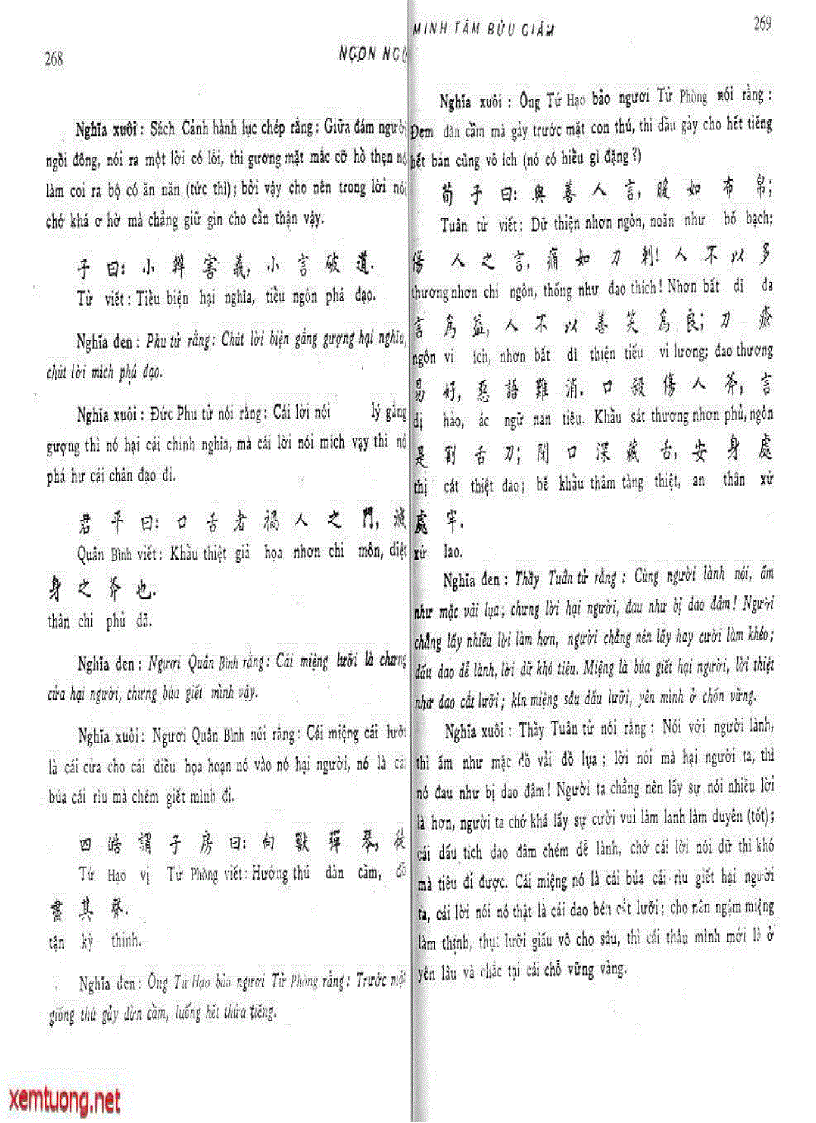 268
NGON NGU
Nghĩa xuôi : Sách Cảnh hành lục chép rằng : Giữa đám người
ngồi đông, nói ra một lời có lỗi, thì gương mặt mắc cỡ hổ thẹn nó
làm coi ra bộ có ăn năn (tức thì) ; bởi vậy cho nên trong lời nói
chớ khá ơ hờ mà chẳng giữ gìn cho cẩn thận vậy.
子 曰: 小 辨 害 義, 小 言 破 道.
Tử viết : Tiểu biện hại nghĩa, tiểu ngôn phá đạo.
Nghĩa đen : Phu tử rằng : Chút lời biện gắng gượng hại nghĩa,
chút lời mích phá đạo.
Nghĩa xuôi : Đức Phu tử nói rằng : Cái lời nói lý gắng
gượng thì nó hại cái chính nghĩa, mà cái lời nói mích vạy thì nó
phá hư cái chân đạo đi.
君 平 曰: 口 舌 者 禍 人 之 門, 滅
Quân Bình viết : Khẩu thiệt giả họa nhơn chi môn, diệt
身 之 斧 也.
thân chi phủ dã.
Nghĩa đen : Ngươi Quân Bình rằng : Cái miệng lưỡi là chưng
cửa hại người, chưng búa giết mình vậy.
Nghĩa xuôi : Ngươi Quân Bình nói rằng : Cái miệng cái lưỡi
là cái cửa cho cái điều họa hoạn nó vào nó hại người, nó là cái
búa cái rìu mà chém giết mình đi.
四 浩 謂 子 房 曰: 向 獸 彈 琴, 徒
Tứ Hạo vị Tử Phòng viết : Hướng thú đàn cầm, đồ
盡 其 聲.
tận kỳ thinh.
Nghĩa đen : Ông Tứ Hạo bảo ngươi Tử Phòng rằng : Trước mặt
giống thú gảy đờn cầm, luống hết thửa tiếng.
MINH TÂM BỬU GIÁM
269
Nghĩa xuôi : Ông Tứ Hạo bảo ngươi Tử Phòng nói rằng :
Đem đàn cầm mà gảy trước mặt con thú, thì dầu gảy cho hết tiếng
hết bản cũng vô ích (nó có hiểu gì đặng ?)
荀 子 曰: 與 善 人 言, 暖 如 布 帛;
Tuân tử viết : Dữ thiện nhơn ngôn, noãn như bố bạch;
傷 人 之 言, 痛 如 刀 刺! 人 不 以 多
thương nhơn chi ngôn, thống như đao thích! Nhơn bất dĩ đa
言 為 益, 人 不 以 善 笑 為 良; 刀 瘡
ngôn vi ích, nhơn bất dĩ thiện tiếu vi lương; đao thương
易 好, 惡 語 難 消. 口 殺 傷 人 斧, 言
dị hảo, ác ngữ nan tiêu. Khẩu sát thương nhơn phủ, ngôn
是 割 舌 刀; 閉 口 深 藏 舌, 安 身 處
thị cát thiệt dao; bế khẩu thâm tàng thiệt, an thân xứ
處 牢.
xứ lao.
Nghĩa đen : Thầy Tuân tử rằng : Cùng người lành nói, ấm
như mặc vải lụa; chưng lời hại người, đau như bị dao đâm! Người
chẳng lấy nhiều lời làm hơn, người chẳng nên lấy hay cười làm khéo;
dấu dao dễ lành, lời dữ khó tiêu. Miệng là búa giết hại người, lời thiệt
như dao cắt lưỡi; kín miệng sâu dấu lưỡi, yên mình ở chốn vững.
Nghĩa xuôi : Thầy Tuân tử nói rằng : Nói với người lành,
thì ấm như mặc đồ vải đồ lụa ; lời nói mà hại người ta, thì
nó đau như bị dao đâm! Người ta chẳng nên lấy sự nói nhiều lời
là hơn, người ta chớ khá lấy sự cười vui làm lanh làm duyên (tốt);
cái dấu tích dao đâm chém dễ lành, chớ cái lời nói dữ thì khó
mà tiêu đi được. Cái miệng nó là cái búa cái rìu giết hại người
ta, cái lời nói nó thật là cái dao bén cắt lưỡi ; cho nên ngậm miệng
làm thinh, thụt lưỡi giấu vô cho sâu, thì cái thân mình mới là ở
yên lâu và chắc tại cái chỗ vững vàng.
xemtuong.net